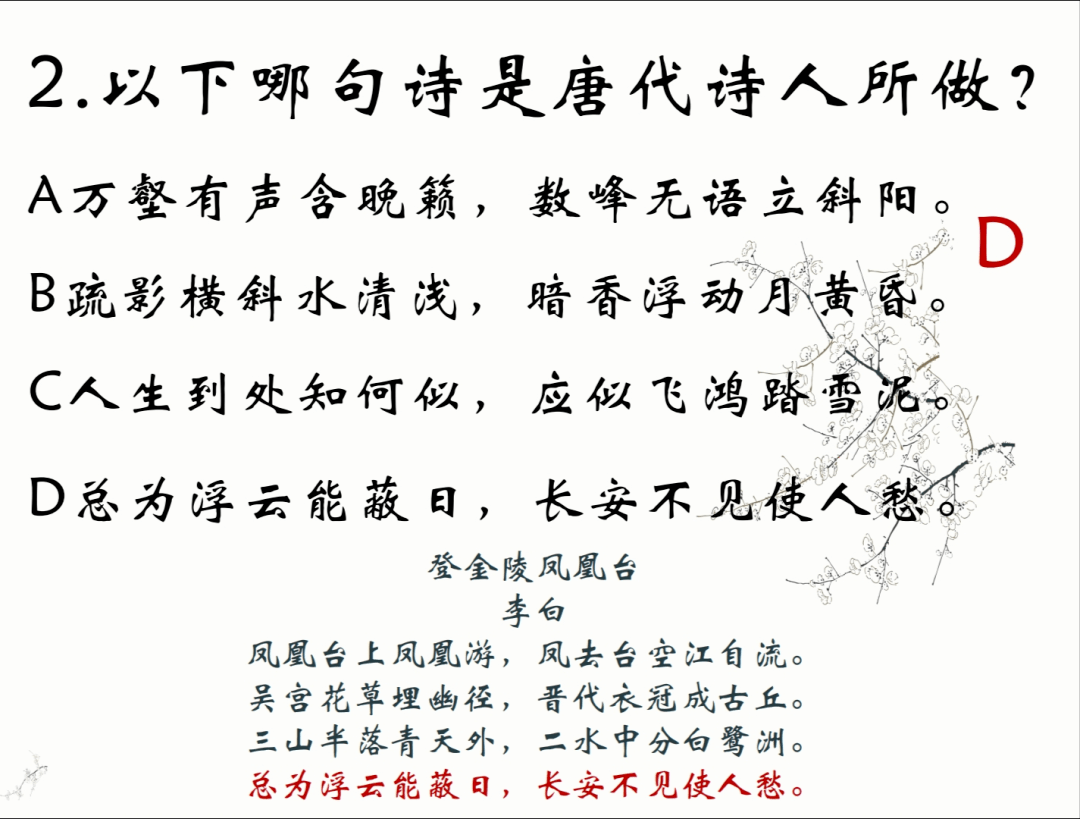 2.以下哪句诗是唐代诗人所做？
A万壑有声含晚籁，数峰无语立斜阳。
D
B疏影横斜水清浅，暗香浮动月黄昏。
C人生到处知何似，应似飞鸿踏雪泥。
D总为浮云能蔽日，长安不见使人愁。
登金陵凤凰台
李白
凤凰台上凤凰游，凤去台空江自流。
吴宫花草埋幽径，晋代衣冠成古丘。
三山半落青天外，二水中分白鹭洲。
总为浮云能蔽日，长安不见使人愁。